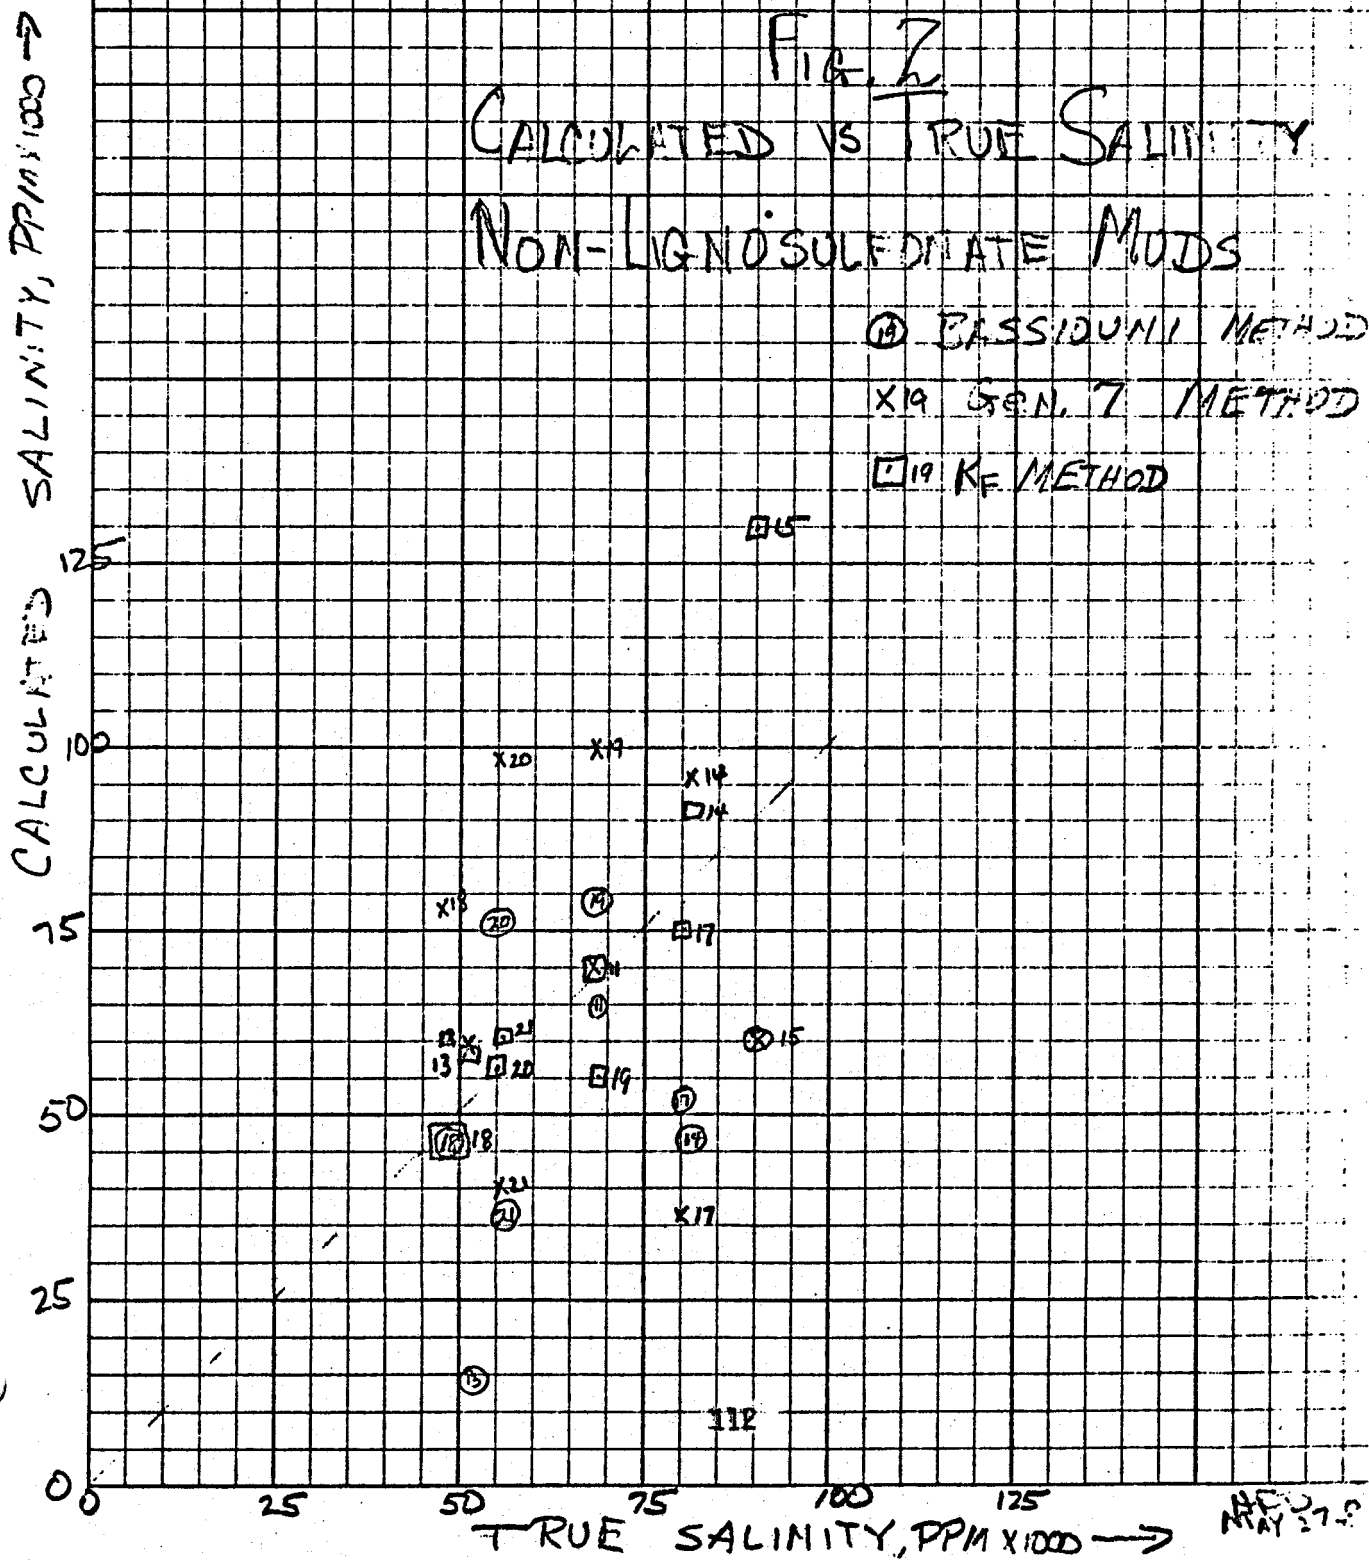 FIG. 2
CALCULATED VS TRUE SALINITY
NON-LIGNOSULFONATE MUDS
19 BASSIOUNI METHOD
X19 GEN. 7 METHOD
19 KF METHOD
CALCULATED SALINITY, PPM X1000 →
15
125
100
X20
X19
X14
14
X18
20
19
75
17
X 11
11
13 X
21
13
20
X 15
19
50
17
18 18
14
X21
21
X17
25
13
112
0
0 25 50 75 100 125
TRUE SALINITY, PPM X1000 →
MAY 27